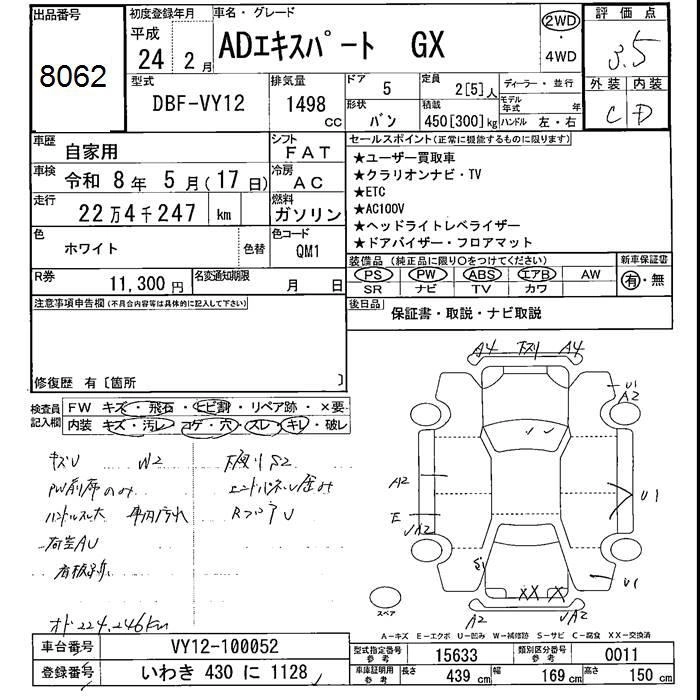 出品番号
8062
初度登録年月
平成
24 2月
車名・グレード
ADエキスパート GX
2WD
・
4WD
評価点
3.5
外装 内装
C D
型式
DBF-VY12
排気量
1498 cc
ドア
5
形状
バン
定員
2[5]人
積載
450[300]kg
ディーラー・並行
モデル年式 年
ハンドル 左・右
車歴
自家用
シフト
FAT
車検
令和 8年 5月(17日)
冷房
AC
走行
22万4千247 km
燃料
ガソリン
色
ホワイト
色替
色コード
QM1
セールスポイント(正常に機能するものに限ります)
★ユーザー買取車
★クラリオンナビ・TV
★ETC
★AC100V
★ヘッドライトレベライザー
★ドアバイザー・フロアマット
装備品(純正品に限り○をつけてください)
PS PW ABS エアB AW
SR ナビ TV カワ
新車保証書
有・無
R券
11,300円
名変通知期限
月 日
後日品
保証書・取説・ナビ取説
注意事項申告欄(不具合内容等は具体的に記入して下さい)
修復歴 有〔箇所 〕
検査員記入欄
FW キズ・飛石・ヒビ割・リペア跡・×要
内装 キズ・汚レ・コゲ・穴・スレ・キレ・破レ
キズU W2 下廻りS2
PW前席のみ エンドパネル歪み
ハンドルスレ大 車内汚れ RフロアU
荷室AU
看板跡
オド 224,246km
A4 下スリ A4
U1
A2
A2
E
A2
U1
U1
XX X
A2 A2
スペア
A-キズ E-エクボ U-凹み W-補修跡 S-サビ C-腐食 XX-交換済
車台番号
VY12-100052
登録番号
いわき 430 に 1128
型式指定番号 参考
15633
類別区分番号 参考
0011
車庫証明用 参考
長さ 439cm 幅 169cm 高さ 150cm